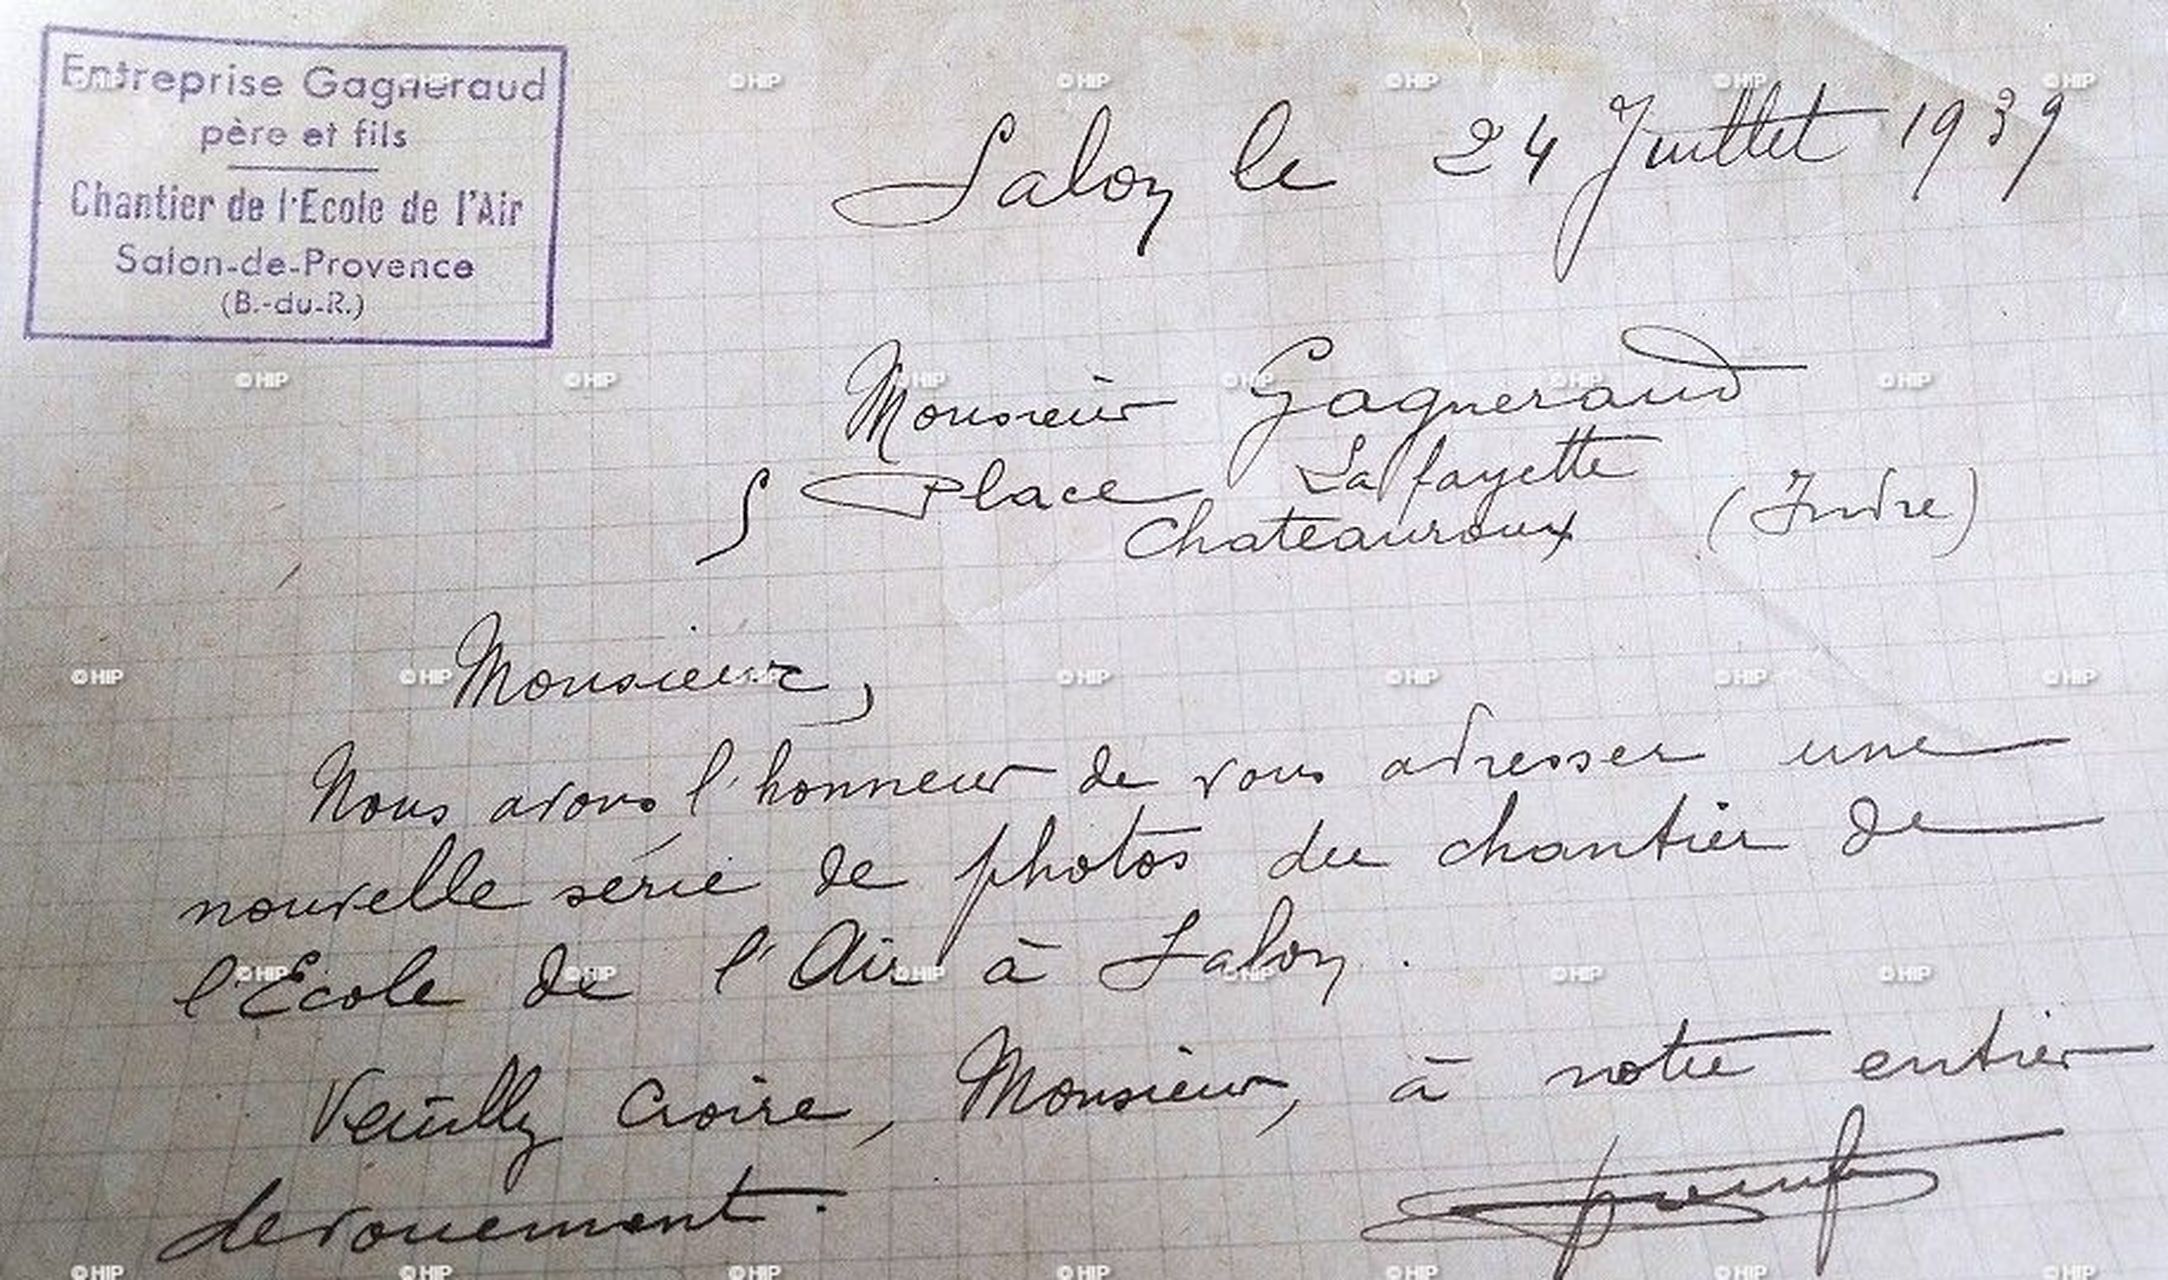 Entreprise Gagneraud
père et fils
Chantier de l'Ecole de l'Air
Salon-de-Provence
(B.-du-R.)
Salon le 24 Juillet 1939
Monsieur Gagneraud
Place La fayette
Chateauroux (Indre)
Monsieur,
Nous avons l'honneur de vous adresser une
nouvelle série de photos du chantier de
l'Ecole de l'Air à Salon.
Veuilly croire, Monsieur, à notre entier
devouement.
© HIP